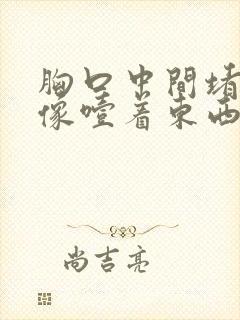 胸口中間堵
像噎着東西
尚吉亮